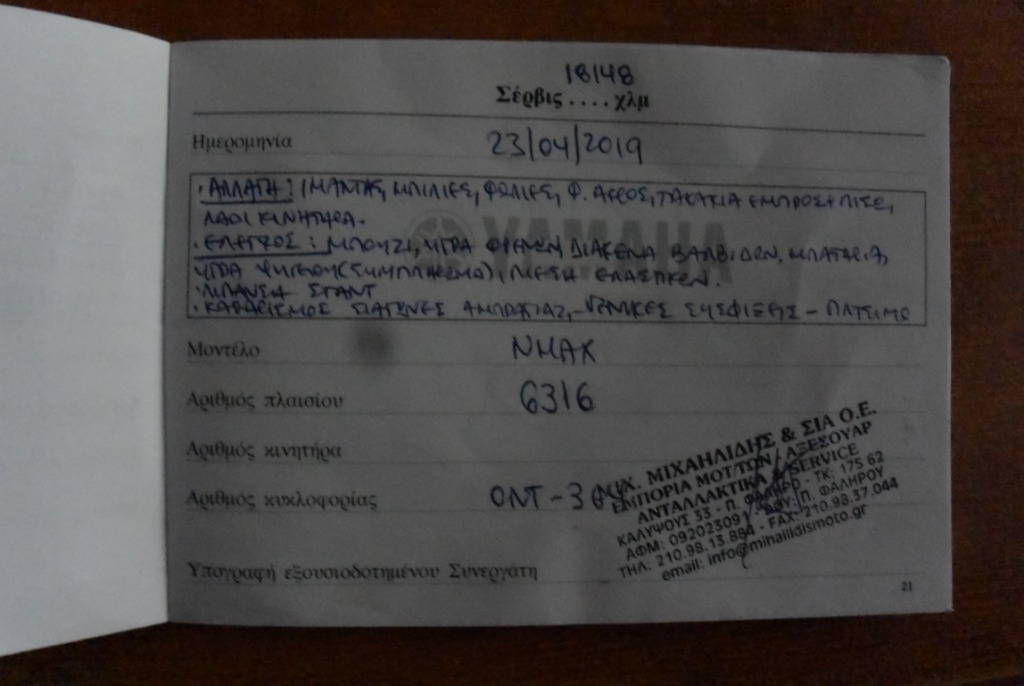 18148
Σέρβις .... χλμ
Ημερομηνία 23/04/2019
· ΑΛΛΑΓΗ: ΙΜΑΝΤΑΣ, ΜΠΙΛΙΕΣ, ΦΩΛΙΕΣ, Φ. ΑΕΡΟΣ, ΤΑΚΑΚΙΑ ΕΜΠΡΟΣ+ΠΙΣΩ,
ΛΑΔΙ ΚΙΝΗΤΗΡΑ.
YAMAHA
· ΕΛΕΓΧΟΣ: ΜΠΟΥΖΙ, ΥΓΡΑ ΦΡΕΝΩΝ, ΔΙΑΚΕΝΑ ΒΑΛΒΙΔΩΝ, ΜΠΑΤΑΡΙΑ,
ΥΓΡΑ ΨΥΓΕΙΟΥ (ΣΥΜΠΛΗΡΩΜΑ), ΠΙΕΣΗ ΕΛΑΣΤΙΚΩΝ.
· ΛΙΠΑΝΣΗ ΣΤΑΝΤ
· ΚΑΘΑΡΙΣΜΟΣ ΣΙΑΓΩΝΕΣ ΑΜΠΡΑΓΙΑΖ, - ΓΕΝΙΚΕΣ ΣΥΣΦΙΞΕΙΣ - ΠΛΥΣΙΜΟ
Μοντέλο NMAX
Αριθμός πλαισίου 6316
Αριθμός κινητήρα
Αριθμός κυκλοφορίας
ΜΙΧ. ΜΙΧΑΗΛΙΔΗΣ & ΣΙΑ Ο.Ε.
ΕΜΠΟΡΙΑ ΜΟΤ/ΤΩΝ / ΑΞΕΣΟΥΑΡ
ΑΝΤΑΛΛΑΚΤΙΚΑ & SERVICE
ΚΑΛΥΨΟΥΣ 33 - Π. ΦΑΛΗΡΟ - ΤΚ: 175 62
ΑΦΜ: 09202309 - ΔΟΥ: Π. ΦΑΛΗΡΟΥ
ΤΗΛ: 210.98.13.884 - FAX: 210.98.37.044
email: info@mihailidismoto.gr
Υπογραφή εξουσιοδοτημένου Συνεργάτη
21